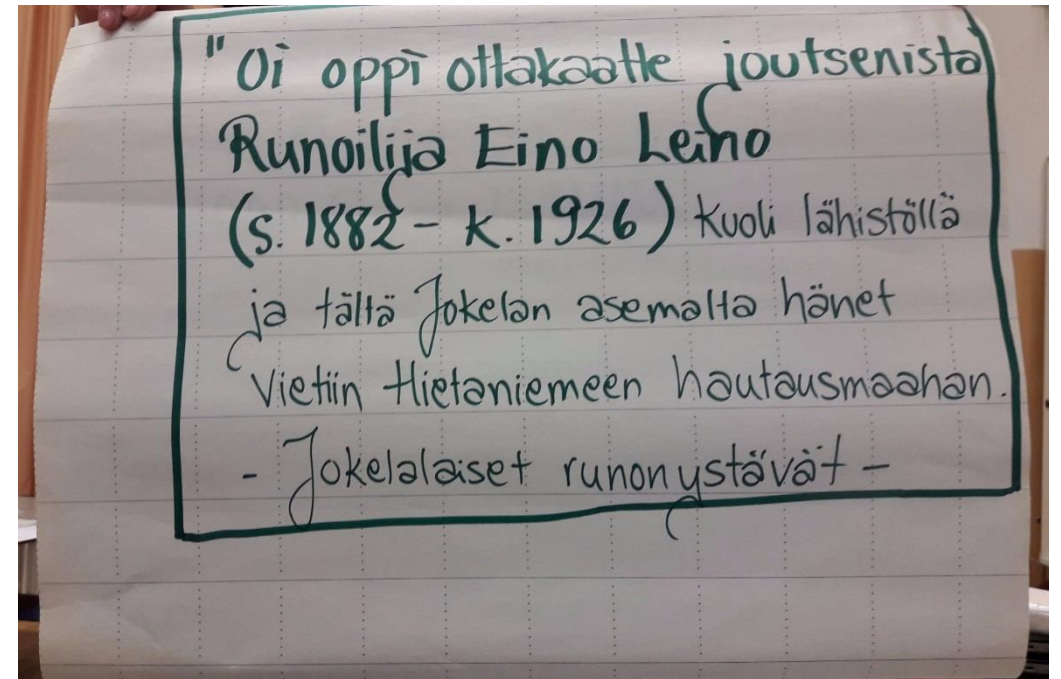 "Oi oppi ottakaatte joutsenista
Runoilija Eino Leino
(s. 1882 - k. 1926) kuoli lähistöllä
ja tältä Jokelan asemalta hänet
vietiin Hietaniemeen hautausmaahan.
- Jokelalaiset runonystävät -